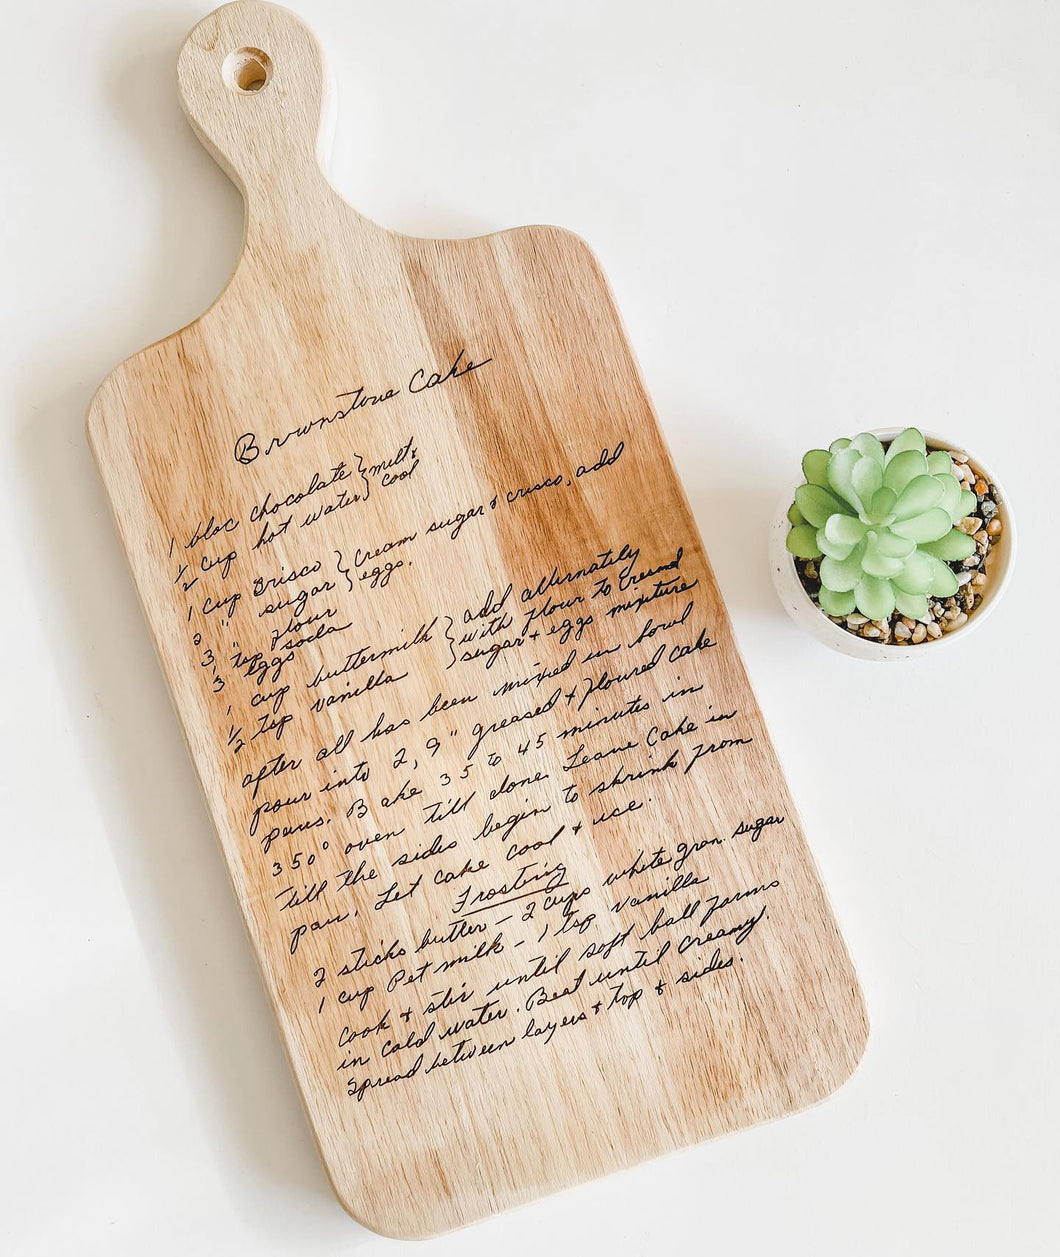 Brownstone Cake
1 bloc chocolate } melt &
1/2 cup hot water } cool
1 cup Crisco } Cream sugar & crisco, add
2 " sugar } eggs.
3 " flour
1 tsp soda
3 eggs
1 cup buttermilk } add alternately
1/2 tsp vanilla } with flour to Creamed
sugar + eggs mixture
after all has been mixed in bowl
pour into 2, 9" greased & floured cake
pans. Bake 35 to 45 minutes in
350° oven till done. Leave Cake in
till the sides begin to shrink from
pan. Let cake cool & ice.
Frosting
2 sticks butter - 2 cups white gran. sugar
1 cup Pet milk - 1 tsp vanilla
Cook & stir until soft ball forms
in cold water. Beat until creamy.
Spread between layers & top & sides.